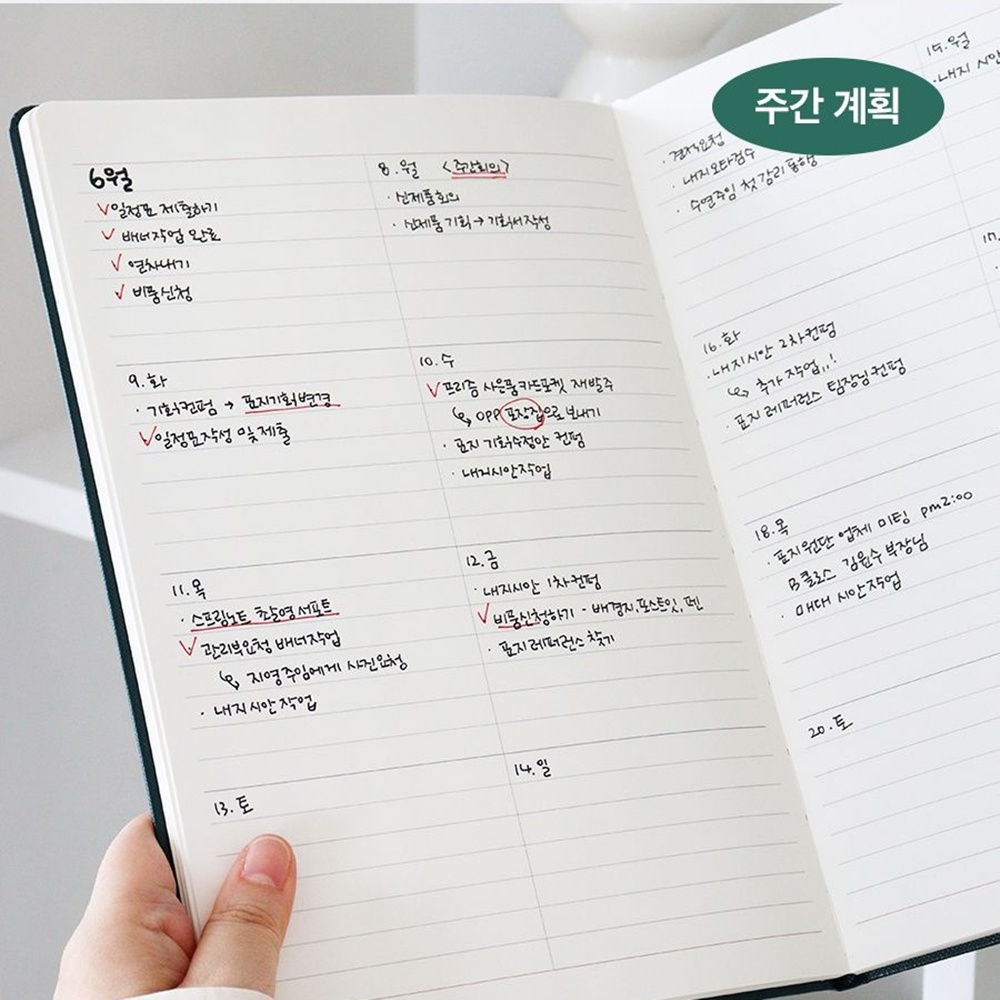 주간 계획
6월
일정표 제출하기
배너작업 완료
연차내기
비품신청
8.월 <주간회의>
· 신제품회의
· 신제품 기획 → 기획서작성
9.화
· 기획컨펌 → 표지기획변경
일정표작성 및 제출
10.수
프리즘 사은품카드포켓 재발주
↳ OPP 포장집으로 보내기
· 표지 기획수정안 컨펌
· 내지시안작업
11.목
· 스프링노트 촬영서포트
관리부요청 배너작업
↳ 지영주임에게 사진요청
· 내지시안작업
12.금
· 내지시안 1차컨펌
비품신청하기 - 배경지, 포스트잇, 펜
· 표지레퍼런스 찾기
13.토
14.일
15.월
· 내지 시안
· 내지오타검수
· 수연주임 첫감리동행
16.화
· 내지시안 2차컨펌
↳ 추가 작업,,!
· 표지레퍼런스 팀장님컨펌
17.
18.목
· 표지원단 업체 미팅 pm2:00
B클로스 김윤수부장님
· 매대 시안작업
20.토